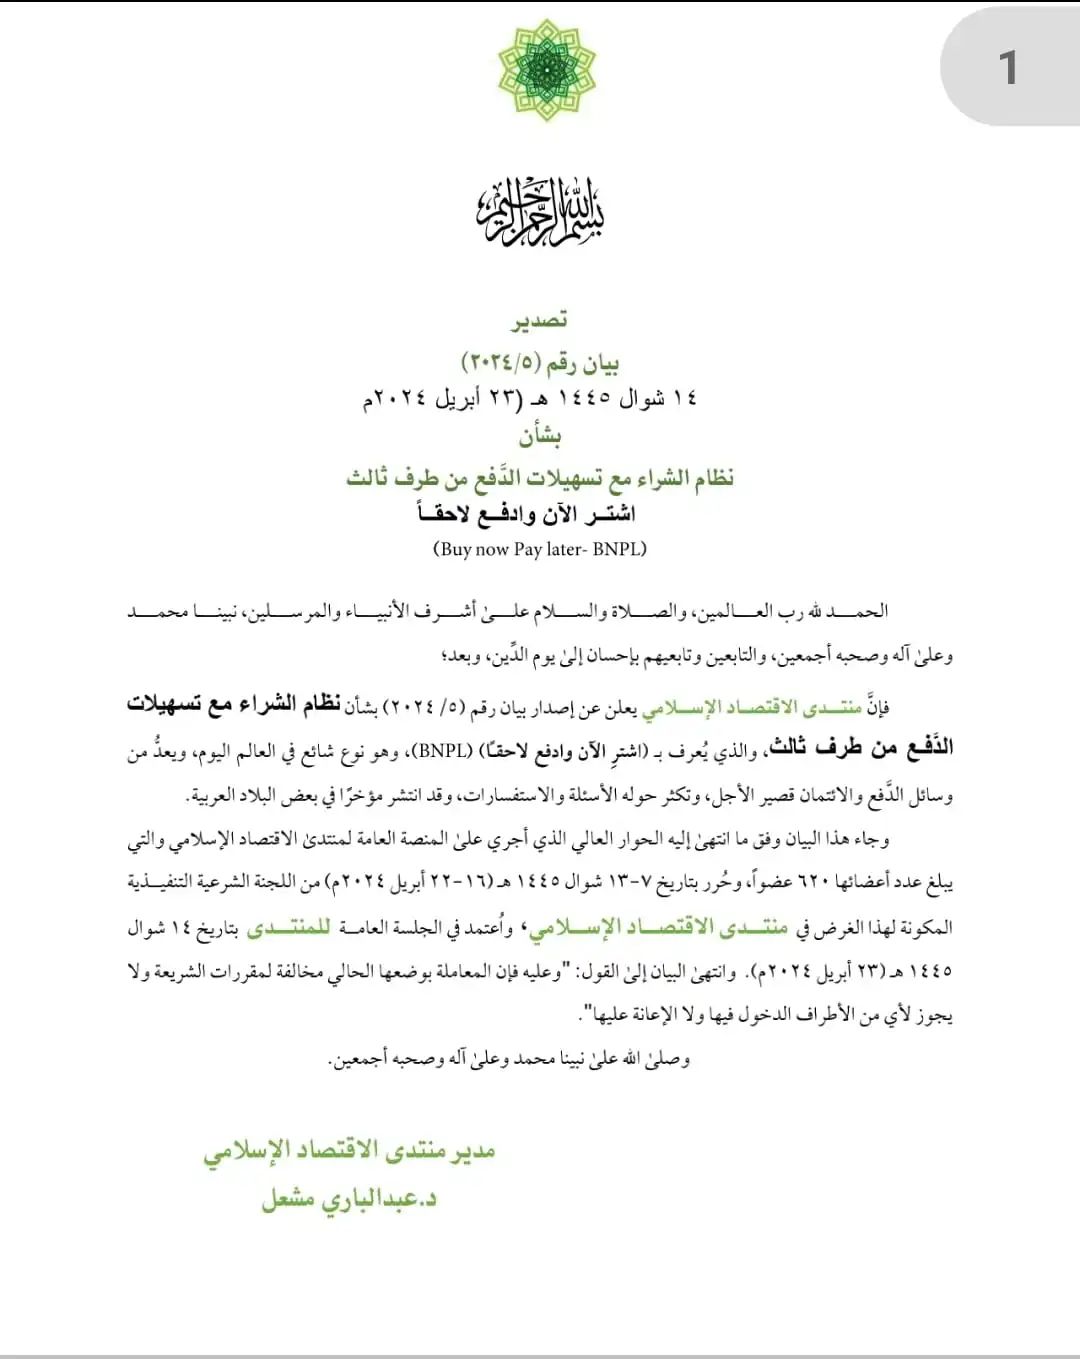 1
بسم الله الرحمن الرحيم
تصدير
بيان رقم (٢٠٢٤/٥)
١٤ شوال ١٤٤٥ هـ (٢٣ أبريل ٢٠٢٤م
بشأن
نظام الشراء مع تسهيلات الدَّفع من طرف ثالث
اشتـر الآن وادفـع لاحقـاً
(Buy now Pay later- BNPL)
الحمـد لله رب العـالمين، والصـلاة والسـلام علـىٰ أشـرف الأنبيـاء والمرسـلين، نبينـا محمـد
وعلىٰ آله وصحبه أجمعين، والتابعين وتابعيهم بإحسان إلىٰ يوم الدِّين، وبعد؛
فإنَّ منتـدى الاقتصـاد الإسـلامي يعلن عن إصدار بيان رقم (٥/ ٢٠٢٤) بشأن نظام الشراء مع تسهيلات
الدَّفـع من طرف ثالث، والذي يُعرف بـ (اشترِ الآن وادفع لاحقًا) (BNPL)، وهو نوع شائع في العالم اليوم، ويعدُّ من
وسائل الدَّفع والائتمان قصير الأجل، وتكثر حوله الأسئلة والاستفسارات، وقد انتشر مؤخرًا في بعض البلاد العربية.
وجاء هذا البيان وفق ما انتهىٰ إليه الحوار العالي الذي أجري علىٰ المنصة العامة لمنتدىٰ الاقتصاد الإسلامي والتي
يبلغ عدد أعضائها ٦٢٠ عضواً، وحُرر بتاريخ ٧-١٣ شوال ١٤٤٥ هـ (١٦-٢٢ أبريل ٢٠٢٤م) من اللجنة الشرعية التنفيـذية
المكونة لهذا الغرض في منتـدى الاقتصـاد الإسـلامي، واُعتمد في الجلسة العامـة للمنتـدى بتاريخ ١٤ شوال
١٤٤٥ هـ (٢٣ أبريل ٢٠٢٤م). وانتهىٰ البيان إلىٰ القول: "وعليه فإن المعاملة بوضعها الحالي مخالفة لمقررات الشريعة ولا
يجوز لأي من الأطراف الدخول فيها ولا الإعانة عليها".
وصلىٰ الله علىٰ نبينا محمد وعلىٰ آله وصحبه أجمعين.
مدير منتدى الاقتصاد الإسلامي
د.عبدالباري مشعل